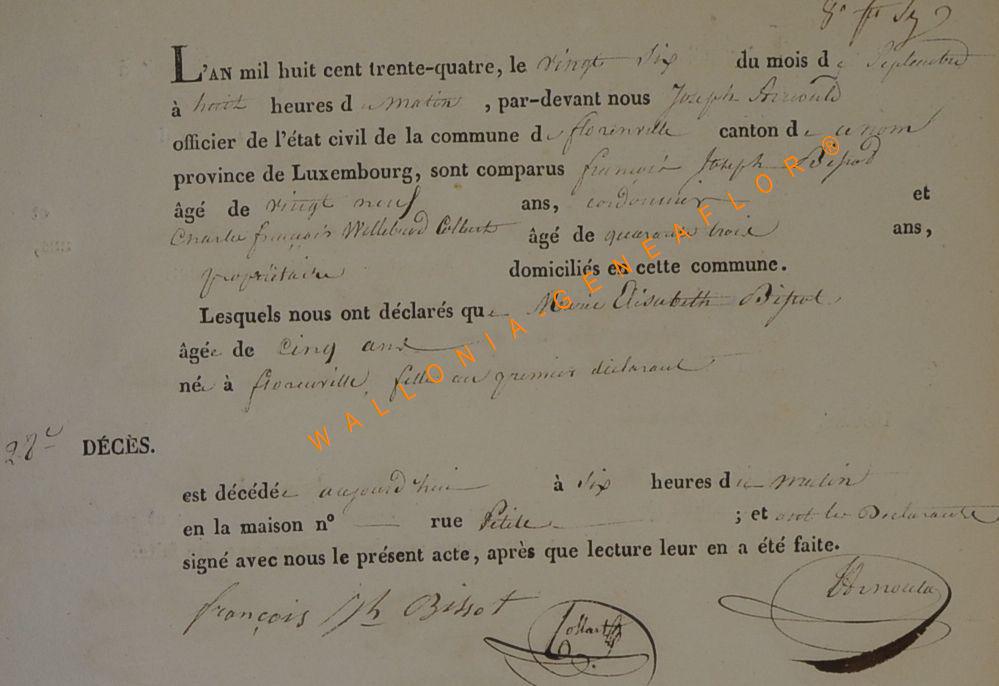 L'AN mil huit cent trente-quatre, le vingt six du mois de Septembre
à huit heures du matin, par-devant nous Joseph Arnould
officier de l'état civil de la commune de florenville canton de ce nom
province de Luxembourg, sont comparus françois Joseph Bissot
âgé de vingt neuf ans, cordonnier et
Charles françois Willebrod Collart âgé de quarante trois ans,
propriétaire domiciliés en cette commune.
Lesquels nous ont déclarés que Marie Elisabeth Bissot,
âgée de cinq ans
née à florenville, fille au premier déclarant
28e DÉCÈS.
est décédée aujourd'hui à six heures du matin
en la maison n° — rue Petite ; et ont les Déclarants
signé avec nous le présent acte, après que lecture leur en a été faite.
françois Jph Bissot Collart Arnould
WALLONIA-GENEAFLOR®